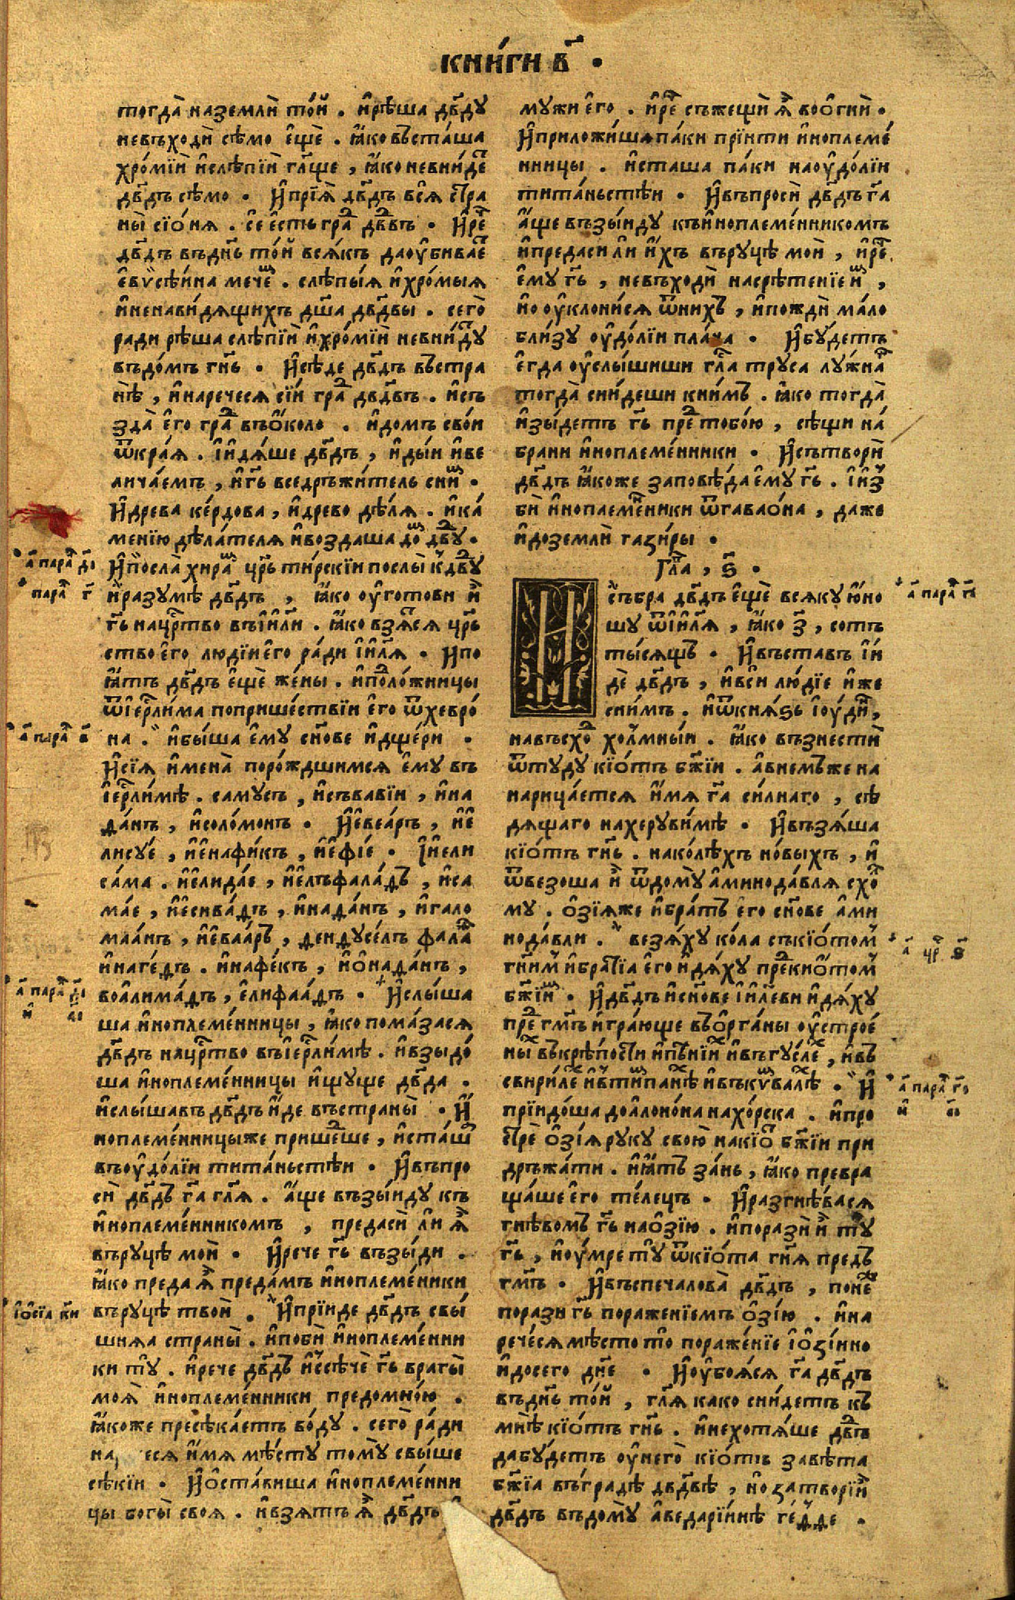 КНИ́ГИ В҃ .
тогда̀ наземлѝ то́й . и҆рѣ́ша дв҃ду
невъходѝ сѣ́мо є҆щѐ . ꙗ҆́ковъсташа
хро́мїй и҆слѣпі́й гл҃ще , ꙗ҆́коневни́детъ
дв҃дъ сѣ́мо . И҆прїѧ̀ дв҃дъ всѧ̀ стра
ны̀ сїо́нѧ . сѐ є҆́сть гра́д дв҃двъ . И҆речѐ
дв҃дъ въдн҃ь то́й всѧ́къ даоу҆бива́етъ
є҆вѵсѣ́ина мече́мъ . слѣпы́ѧ и҆хро́мыѧ
и҆ненави́дѧщихъ дш҃а дв҃двы . сего̀
ради рѣ́ша слѣпі́й и҆хро́мїй невни́дꙋ
въдо́мъ гн҃ь . И҆сѣ́де дв҃дъ въстра
нѣ̀ , и҆нарече́сѧ сі́й гра́д дв҃двъ . и҆съ
зда̀ є҆го̀ гра́д въо́коло . и҆до́мъ сво́й
ѿкра́ѧ . і҆и҆дѧ́ше дв҃дъ , и҆ды́и и҆ве
лича́емъ , и҆гь҃ вседръжи́тель сни́мъ .
И҆древа ке́рдова , и҆древо дѣ́лѧ . и҆ка́
менїю дѣла́телѧ и҆возда́ша до́мъ дв҃дꙋ .
И҆посла̀ хира́мъ цр҃ь ти́рскїи послы̀ къдв҃дꙋ
и҆разꙋмѣ̀ дв҃дъ , ꙗ҆́ко оу҆гото́ви и҆̀
гь҃ нацр҃тво въі҆и҃ли . ꙗ҆́ко взѧ́сѧ цр҃ь
ство є҆го̀ людїи є҆го̀ ра́ди і҆и҃лѧ . И҆по
ꙗ҆́тъ дв҃дъ є҆щѐ же́ны . и҆положницы
ѿі҆ерл҃и́ма поприше́ствїи є҆го̀ ѿхевро́
на . и҆бы́ша є҆мꙋ̀ сн҃ове и҆дще́ри .
И҆сїѧ̀ и҆мена̀ поро́ждшимсѧ є҆мꙋ̀ въ
і҆ерл҃и́мѣ . самꙋ́съ , и҆съва́вїи , и҆на
да́нъ , и҆соло́монъ . И҆є҆веа́ръ , и҆є҆
лисꙋ́е , и҆є҆нафи́къ , и҆є҆фі́е . І҆и҆ели
са́ма . и҆є҆лида́е , и҆є҆лъфала́дъ , и҆са
ма́е , и҆є҆сива́дъ , и҆нада́нъ , и҆гало
маа́нъ , и҆є҆ваа́ръ , дендꙋсе́лъ фала́тъ
и҆наге́дъ . и҆нафе́къ , и҆ѻ҆нада́нъ ,
воалима́дъ , є҆лифаа́дъ . И҆слы́ша
ша и҆ноплеме́нницы , ꙗ҆́ко пома́засѧ
дв҃дъ нацр҃тво въі҆ерл҃и́мѣ . и҆взыдо́
ша и҆ноплеме́нницы и҆щꙋще дв҃да .
и҆слы́шавъ дв҃дъ и҆́де въстраны̀ . И҆
ноплеме́нницыже прише́дше , и҆ста́ша
въоу҆до́лїи тита́ньстѣи . И҆въпро
сѝ дв҃дъ га҃ гл҃ѧ . а҆́ще възы́идꙋ къ
и҆ноплеме́нникомъ , предасѝ ли ѧ҆̀
върꙋцѣ̀ моѝ . И҆рече гь҃ възы́ди .
ꙗ҆́ко преда́ѧ преда́мъ и҆ноплеме́ники
върꙋцѣ̀ твоѝ . И҆прїиде дв҃дъ свы́
шнѧа страны̀ . и҆побѝ и҆ноплеме́нни
ки тꙋ̀ . и҆рече дв҃дъ и҆́ссѣчѐ гь҃ врагы̀
моѧ̀ и҆ноплеме́нники предомно́ю .
ꙗ҆́коже пресѣка́етъ во́дꙋ . сего̀ ра́ди
на есѧ и҆́мѧ мѣ́стꙋ томꙋ̀ свы́ше
сѣ́кїи . И҆ѻ҆ста́виша и҆ноплеме́нни
цы богы̀ своѧ . и҆взѧ́тъ ѧ҆̀ дв҃дъ
мꙋ́жи є҆го . и҆речѐ съжещѝ ѧ҆̀ воо҆гнѝ .
И҆приложи́шапа́ки прїи́ти и҆ноплеме́
нницы . и҆ста́ша па́ки наоу҆до́лїи
тита́ньстѣи . И҆въпросѝ дв҃дъ га҃
а҆́ще възы́идꙋ къи҆ноплеме́нникомъ
и҆предаси́ ли и҆́хъ върꙋцѣ̀ моѝ , и҆речѐ
є҆мꙋ̀ гь҃ , невъходѝ насрѣ́тенїе и҆́мъ ,
но оу҆клони́сѧ ѿни́хъ , и҆пождѝ ма́ло
бли́зꙋ оу҆до́лїи пла́ча . И҆бꙋ́детъ
є҆гда̀ оу҆слы́шиши гла́съ трꙋ́са лꙋ́жна
тогда̀ сни́деши кни́мъ . ꙗ҆́ко тогда̀
и҆зы́детъ гь҃ пре́д тобо́ю , сѣщи на́
брани и҆ноплеме́нники . И҆сътворѝ
дв҃дъ ꙗ҆́коже заповѣ́да є҆мꙋ̀ гь҃ . і҆и҆з
бѝ и҆ноплеме́ники ѿгавао́на , да́же
и҆доземлѝ гази́ры .
Гла , ѕ҃ .
И҆събра̀ дв҃дъ є҆щѐ всѧ́кꙋ ю҆но
шꙋ ѿі҆и҃лѧ , ꙗ҆́ко з҃ , со́тъ
ты́сѧщъ . И҆въста́въ і҆и
дѐ дв҃дъ , и҆всѝ лю́дїе и҆́же
сни́мъ . и҆ѿкнѧ́зь і҆ю́динъ ,
навъсхо́д хо́лмныи . ꙗ҆́ко възнестѝ
ѿтꙋ́дꙋ кїѡ́тъ бж҃їи . а҆внемъже на
нарица́етсѧ и҆́мѧ га҃ си́лнаго , сѣ
дѧ́щаго нахерꙋви́мѣ . И҆възѧ́ша
кїѡ́тъ гн҃ь . нако́лѣхъ но́выхъ , и҆
ѿвезо́ша и҆̀ ѿдо́мꙋ а҆минода́влѧ схо́л
мꙋ . ѻ҆зі́ѧже и҆бра́тъ є҆го̀ сн҃ове а҆ми
нода́вли . везѧ́хꙋ ко́ла съкїѡ́томъ
гн҃имъ и҆бра́тїа є҆го̀ и҆дѧ́хꙋ пре́д кїѡ́томъ
бж҃їимъ . И҆дв҃дъ и҆сн҃ове і҆и҃леви и҆дѧ́хꙋ
пре́д гм҃ъ и҆гра́юще въѻ҆рга́ны оу҆строе́
ны въкрѣ́пости и҆пѣ́нїи и҆въгꙋ́сле , и҆въ
свирѣ́ле и҆втѵмпа́не и҆въкѵмва́лѣ . И҆
прїидо́ша доало́на нахо́рска . и҆про
стрѐ ѻ҆зі́ѧ рꙋкꙋ свою̀ накїѡ́тъ бж҃їи при
дръжа́ти . и҆ꙗ҆́тъ за́нь , ꙗ҆́ко превра
ща́ше є҆го теле́цъ . И҆разгнѣ́васѧ
гнѣ́вомъ гь҃ наѻ҆зі́ю . и҆поразѝ и҆̀ тꙋ̀
гь҃ , и҆оу҆́мре тꙋ̀ ѿкїѡ́та гн҃ѧ предъ
гм҃ъ . И҆въспечалова̀ дв҃дъ , поне́же
поразѝ гь҃ пораже́нїемъ ѻ҆зі́ю . и҆на
рече́сѧ мѣ́сто то̀ пораже́нїе і҆ѻ҆зі́ино
и҆досего̀ днѐ . И҆оу҆боѧ́сѧ га҃ дв҃дъ
въдн҃ь то́й , гл҃ѧ ка́ко сни́детъ къ
мнѣ̀ кїѡ́тъ гн҃ь . и҆нехотѧ́ше дв҃дъ
дабꙋ́детъ оу҆него̀ кїѡ́тъ завѣ́та
бж҃їа въгра́дѣ дв҃двѣ , но затворѝ и҆̀
дв҃дъ въдомꙋ̀ а҆ведарїи́нѣ ге́дде .